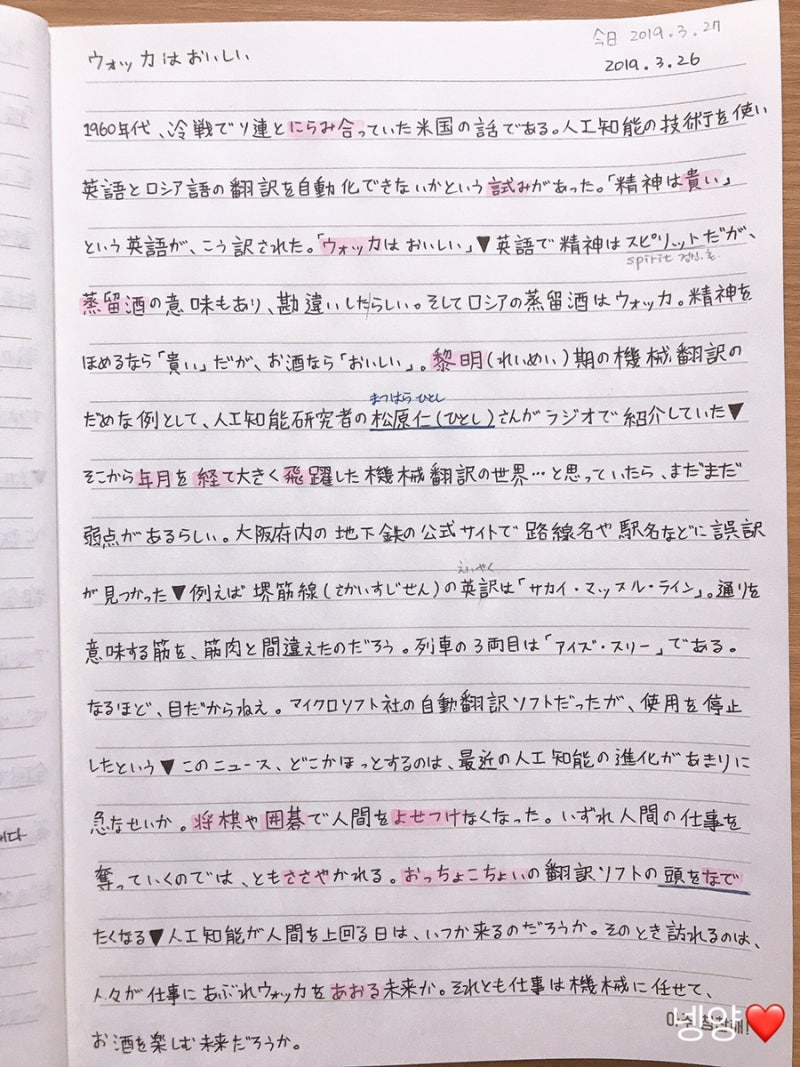 今日 2019.3.27
ウォッカはおいしい
2019.3.26
1960年代、冷戦でソ連とにらみ合っていた米国の話である。人工知能の技術を使い
英語とロシア語の翻訳を自動化できないかという試みがあった。「精神は貴い」
という英語が、こう訳された。「ウォッカはおいしい」▼英語で精神はスピリットだが、
spirit
蒸留酒の意味もあり、勘違いしたらしい。そしてロシアの蒸留酒はウォッカ。精神を
ほめるなら「貴い」だが、お酒なら「おいしい」。黎明(れいめい)期の機械翻訳の
まつばらひとし
だめな例として、人工知能研究者の松原仁(ひとし)さんがラジオで紹介していた▼
そこから年月を経て大きく飛躍した機械翻訳の世界…と思っていたら、まだまだ
弱点があるらしい。大阪府内の地下鉄の公式サイトで路線名や駅名などに誤訳
えいやく
が見つかった▼例えば堺筋線(さかいすじせん)の英訳は「サカイ・マッスル・ライン」。通りを
意味する筋を、筋肉と間違えたのだろう。列車の3両目は「アイズ・スリー」である。
なるほど、目だからねえ。マイクロソフト社の自動翻訳ソフトだったが、使用を停止
したという▼このニュース、どこかほっとするのは、最近の人工知能の進化があまりに
急なせいか。将棋や囲碁で人間をよせつけなくなった。いずれ人間の仕事を
奪っていくのでは、ともささやかれる。おっちょこちょいの翻訳ソフトの頭をなで
たくなる▼人工知能が人間を上回る日は、いつか来るのだろうか。そのとき訪れるのは、
人々が仕事にあぶれウォッカをあおる未来か。それとも仕事は機械に任せて、
お酒を楽しむ未来だろうか。
넹양❤️